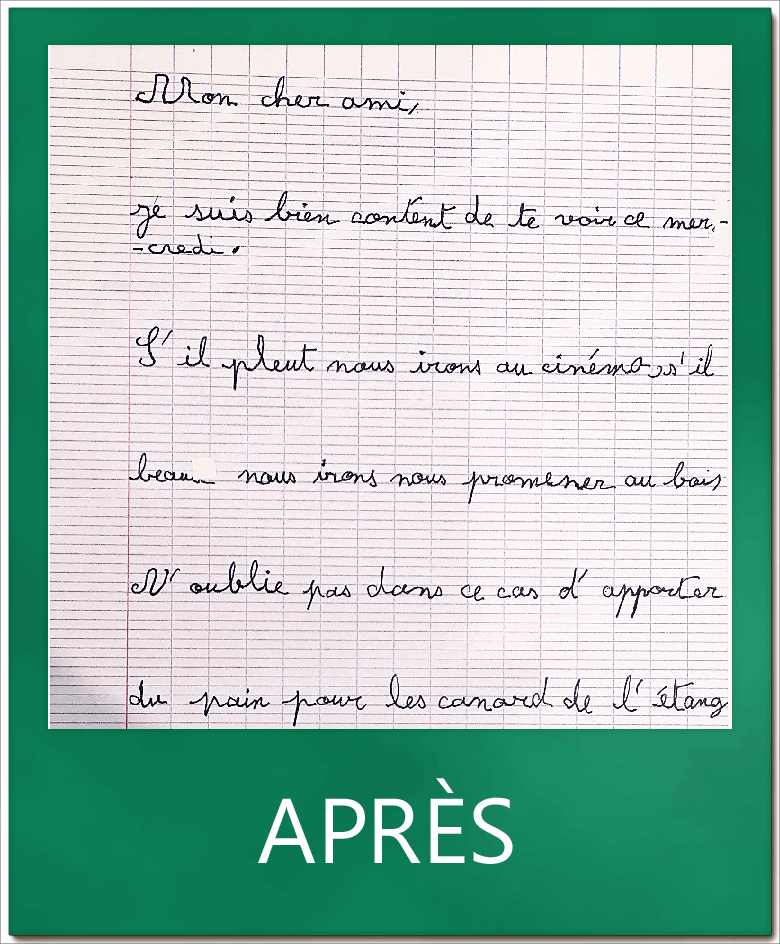 Mon cher ami,
je suis bien content de te voir ce mer-
-credi.
S'il pleut nous irons au cinéma, s'il
beau nous irons nous promener au bois
N'oublie pas dans ce cas d'apporter
du pain pour les canard de l'étang
APRÈS